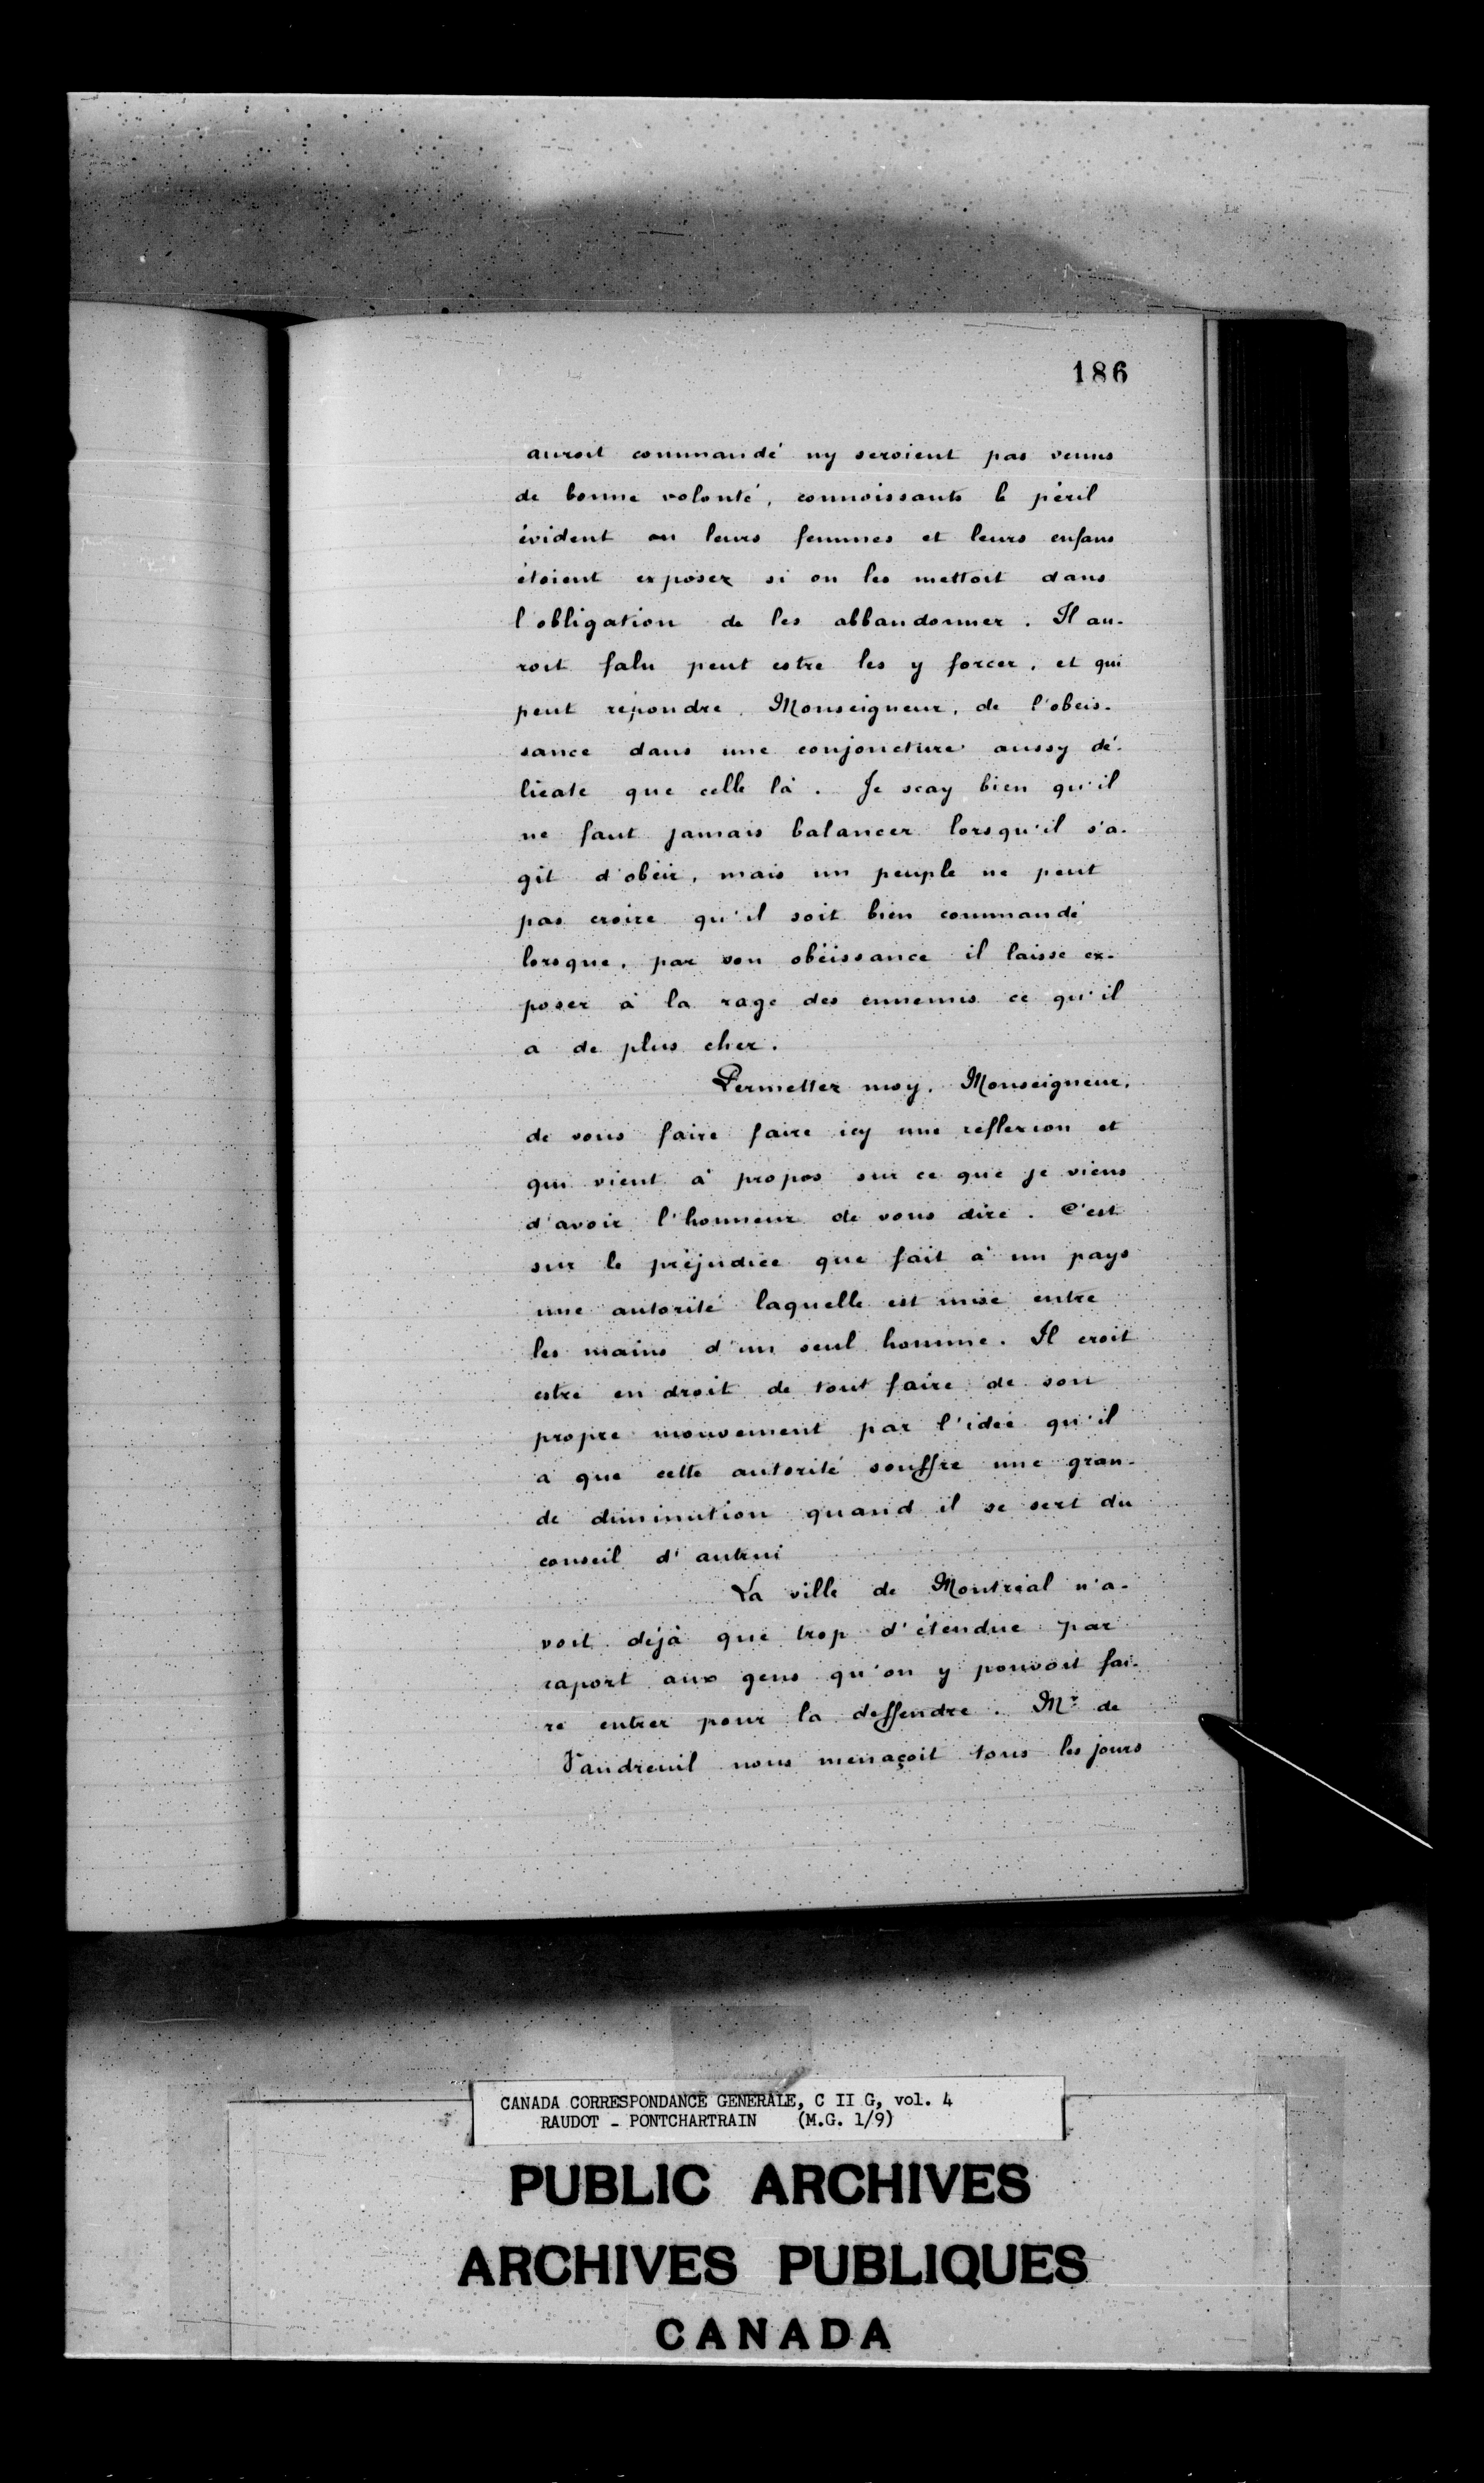 186
auroit commandé ny seroient pas venus
de bonne volonté, connoissants le péril
évident ou leurs femmes et leurs enfans
étoient exposez si on les mettoit dans
l'obligation de les abbandonner. Il au-
roit falu peut estre les y forcer, et qui
peut répondre, Monseigneur, de l'obeis-
sance dans une conjoncture aussy dé-
licate que celle là. Je scay bien qu'il
ne faut jamais balancer lorsqu'il s'a-
git d'obéir, mais un peuple ne peut
pas croire qu'il soit bien commandé
lorsque, par son obéissance il laisse ex-
poser à la rage des ennemis ce qu'il
a de plus cher.
Permettez moy, Monseigneur,
de vous faire faire icy une réflexion et
qui vient à propos sur ce que je viens
d'avoir l'honneur de vous dire. C'est
sur le préjudice que fait à un pays
une autorité laquelle est mise entre
les mains d'un seul homme. Il croit
estre en droit de tout faire de son
propre mouvement par l'idée qu'il
a que cette autorité souffre une gran-
de diminution quand il se sert du
conseil d'autrui
La ville de Montréal n'a-
voit déjà que trop d'étendue par
raport aux gens qu'on y pouvoit fai-
re entrer pour la deffendre. Mr de
Vaudreuil nous menaçoit tous les jours
CANADA CORRESPONDANCE GENERALE, C II G, vol. 4
RAUDOT - PONTCHARTRAIN (M.G. 1/9)
PUBLIC ARCHIVES
ARCHIVES PUBLIQUES
CANADA